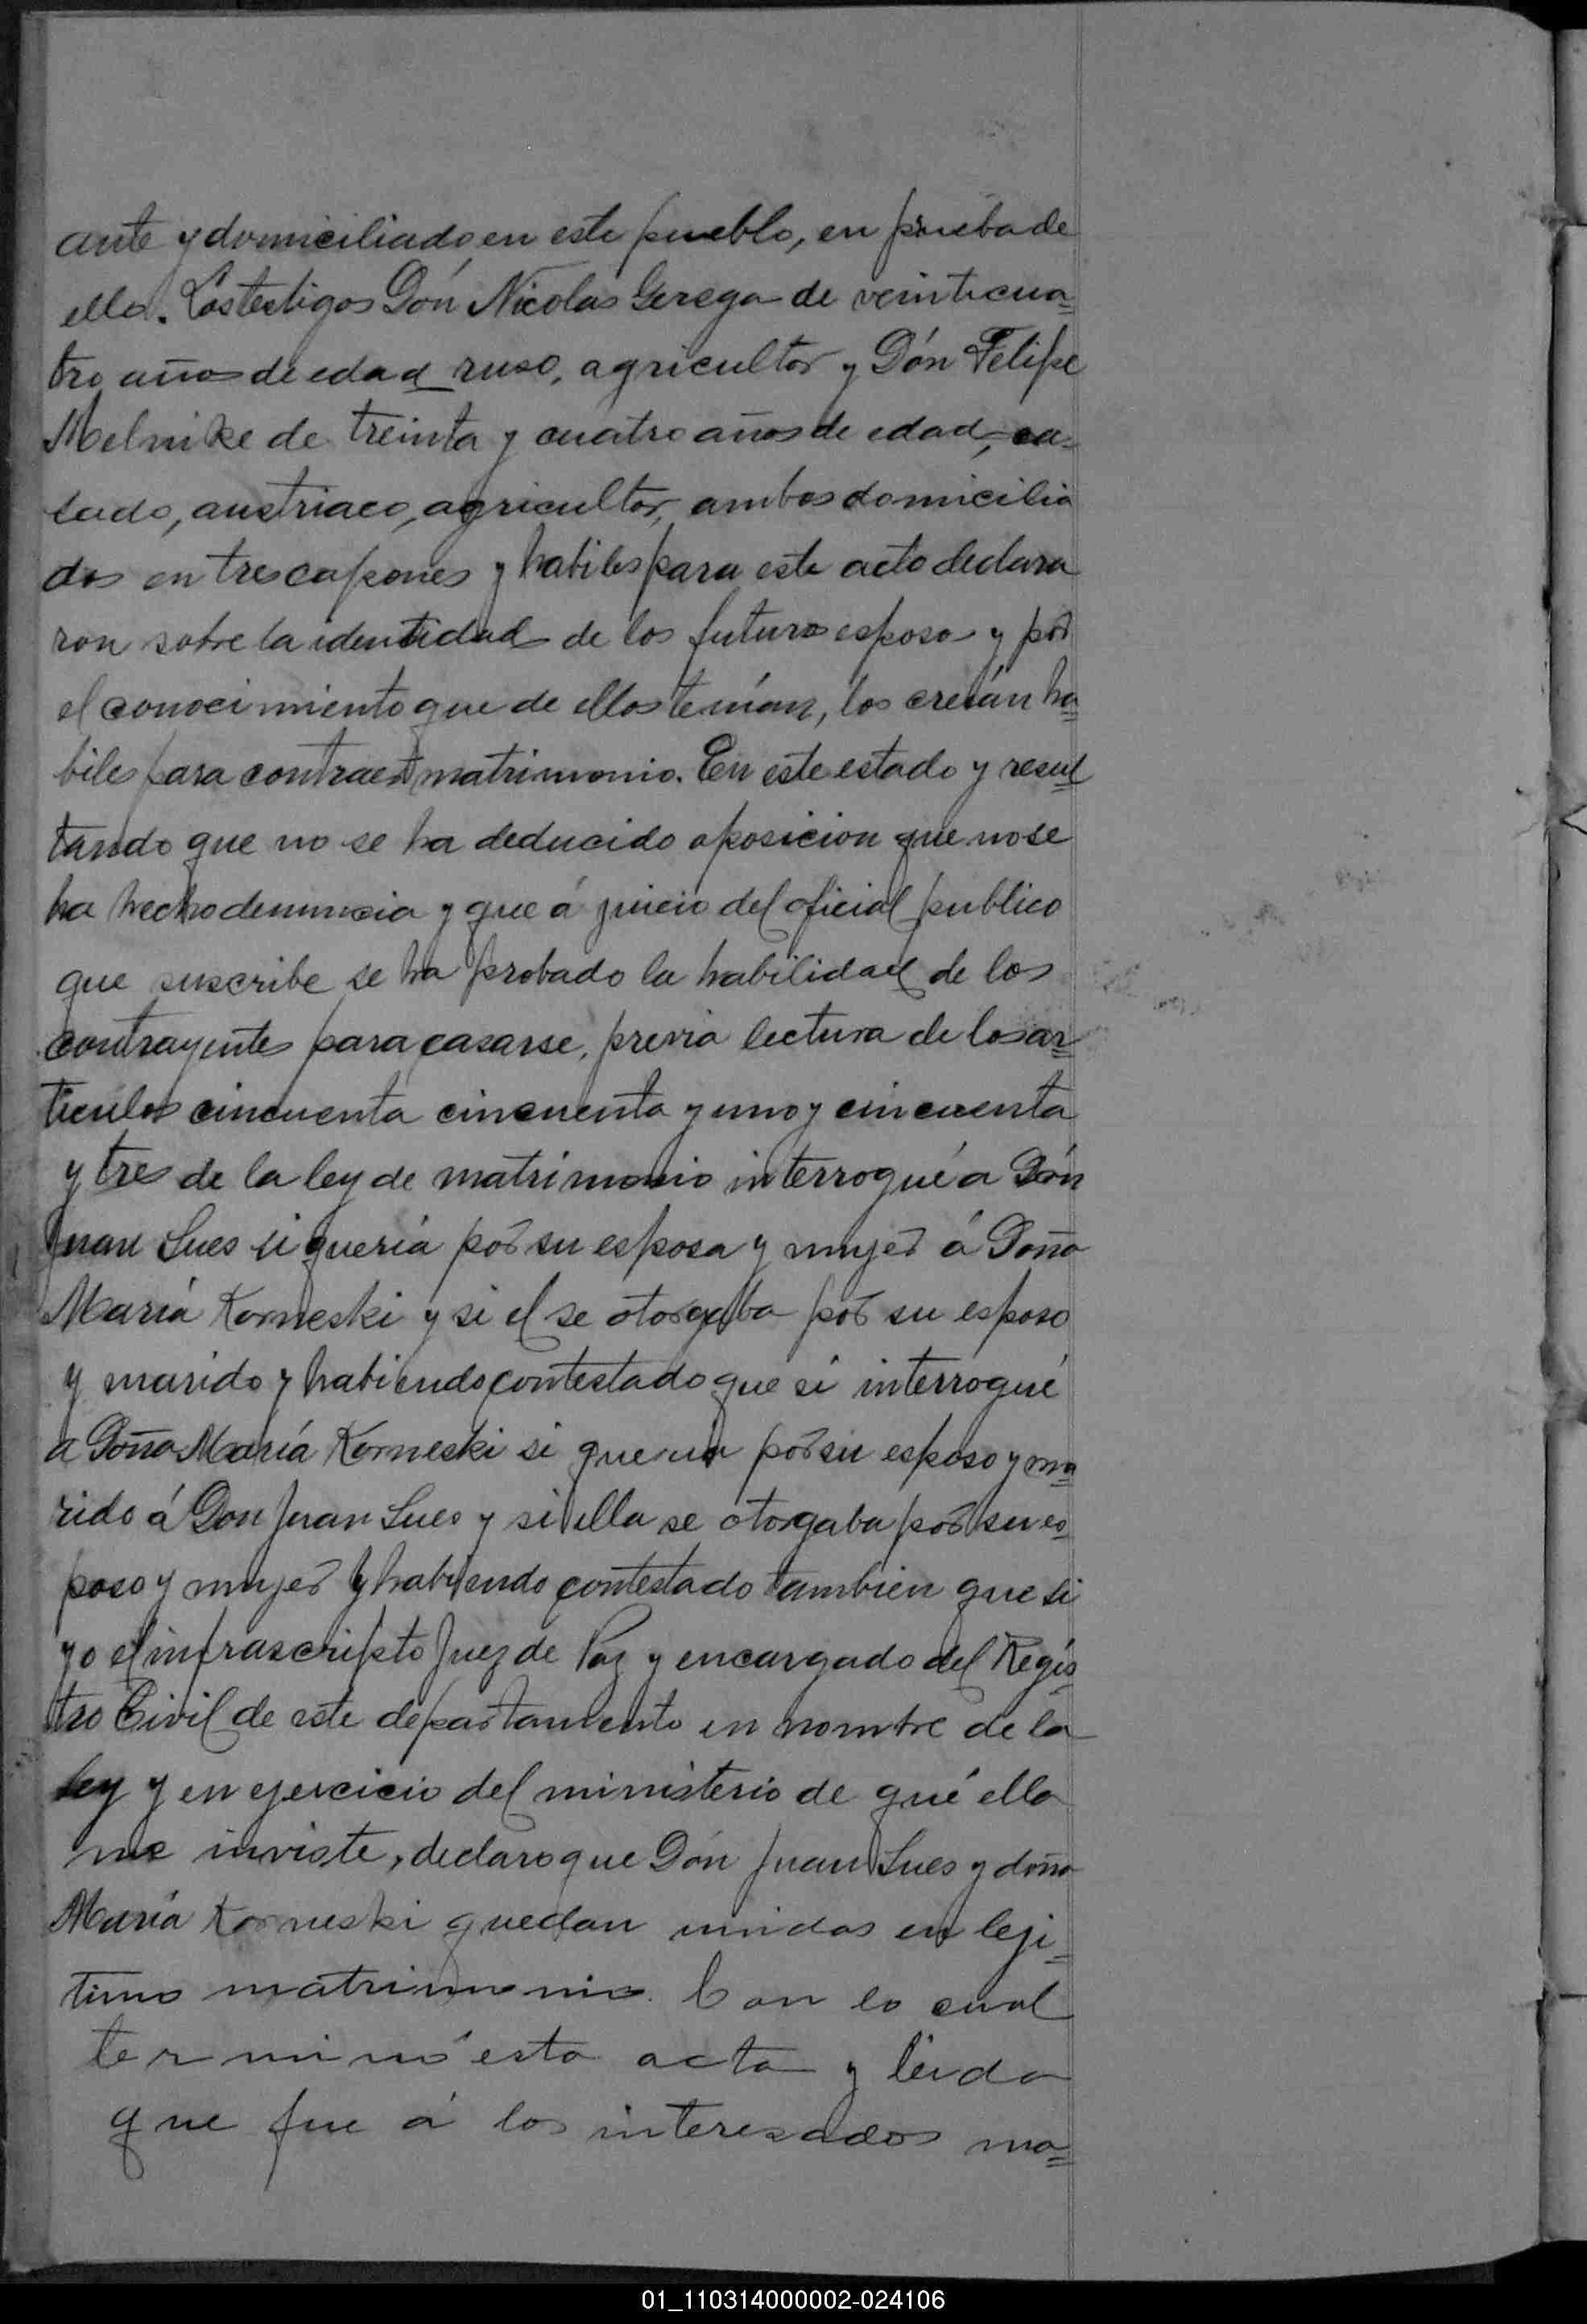 ante y domiciliado en este pueblo, en prueba de
ello. Los testigos Dón Nicolas Gerega de veinticua=
tro años de edad ruso, agricultor y Dón Felipe
Melnike de treinta y cuatro años de edad, ca=
sado, austriaco, agricultor, ambos domicilia
dos en tres capones y habiles para este acto declara
ron sobre la identidad de los futuros esposos y por
el conocimiento que de ellos tenían, los creián ha=
biles para contraer matrimonio. En este estado y resul=
tando que no se ha deducido oposicion que no se
ha hecho denuncia y que á juicio del oficial publico
que suscribe se ha probado la habilidad de los
contrayentes para casarse, previa lectura de los ar=
ticulos cincuenta cincuenta y uno y cincuenta
y tres de la ley de matrimonio interrogué a Dón
Juan Sues si quería por su esposa y mujer á Doña
María Korneski y si el se otorgaba por su esposo
y marido y habiendo contestado que si interrogué
a Doña María Korneski si queria por su esposo y ma=
rido á Don Juan Sues y si ella se otorgaba por su es=
poso y mujer y habiendo contestado tambien que si
yo el infrascripto Juez de Paz y encargado del Regis=
tro Civil de este departamento en nombre de la
ley y en ejercicio del ministerio de qué ella
me inviste, declaro que Dón Juan Sues y doña
María Korneski quedan unidos en leji=
timo matrimonio. Con lo cual
terminó esta acta y leida
que fue á los interesados ma=
01_110314000002-024106